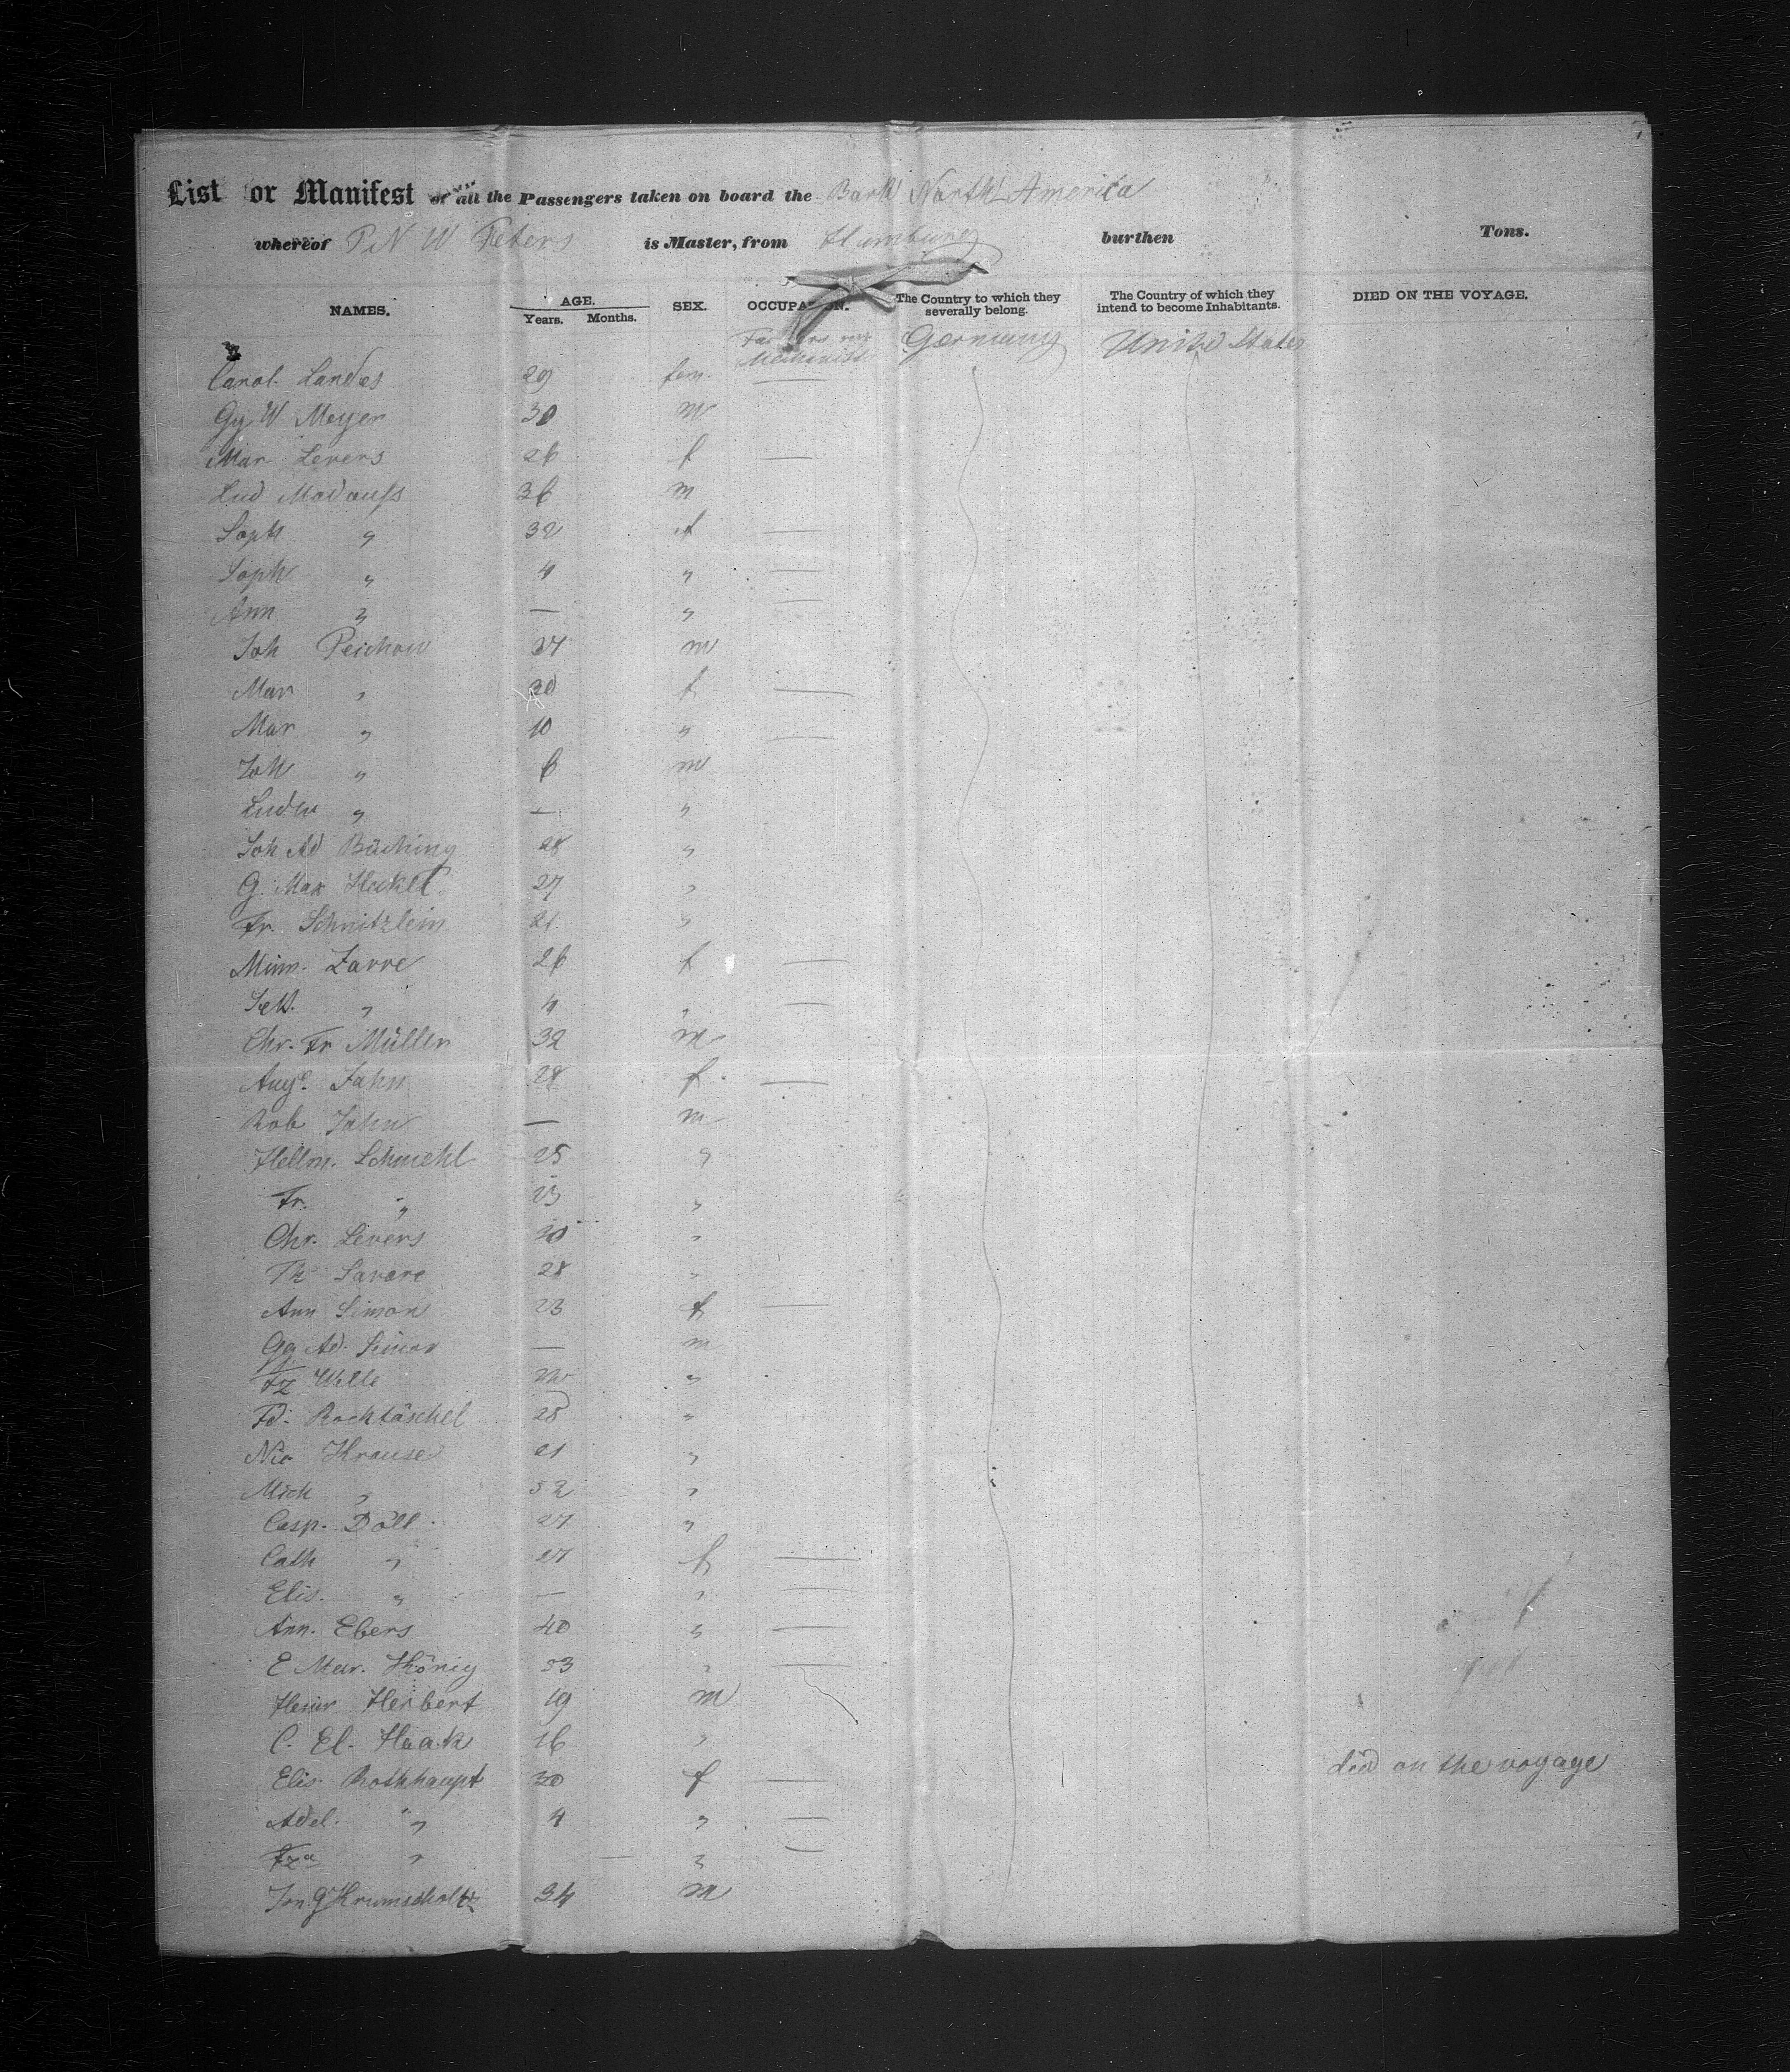 List or Manifest of all the Passengers taken on board the Bark North America
whereof P N W Peters is Master, from Hamburg burthen Tons.
NAMES. AGE. Years. Months. SEX. OCCUPATION. The Country to which they severally belong. The Country of which they intend to become Inhabitants. DIED ON THE VOYAGE.
Germany United States
Carol. Landes 29 fem. —
Gg W Meyer 30 m
Mar Levers 26 f —
Lud Modauss 36 m
Soph " 32 f —
Soph " 4 " —
Ann " — " —
Joh Peichow 37 m
Mar " 30 f —
Mar " 10 " —
Joh " 6 m
Ludw " — "
Joh Ad Büching 28 "
G. Max Heckel 27 "
Fr. Schnitzlein 21 "
Minn. Zarre 26 f —
" 4 " —
Chr. Fr Müller 32 m
Aug. Jahn 28 f —
Rob Jahn — m
Hellm. Schmehl 25 "
Fr. " 23 "
Chr. Levers 30 "
Th Savare 28 "
Ann Simon 23 f —
Gg Ad. Simon — m
Fz Wille "
Fd. Rochtäschel 28 "
Nic Krause 21 "
Mich " 52 "
Casp. Döll 27 "
Cath " 27 f —
Elis. " — " —
Ann. Ebers 40 " —
E Mar. König 53 " —
Heinr Herbert 19 m
C. El. Haak 16 "
Elis. Rothhaupt 30 f — died on the voyage
Adel. " 4 " —
Fza " — " —
Joh. G Krumscholtz 34 m